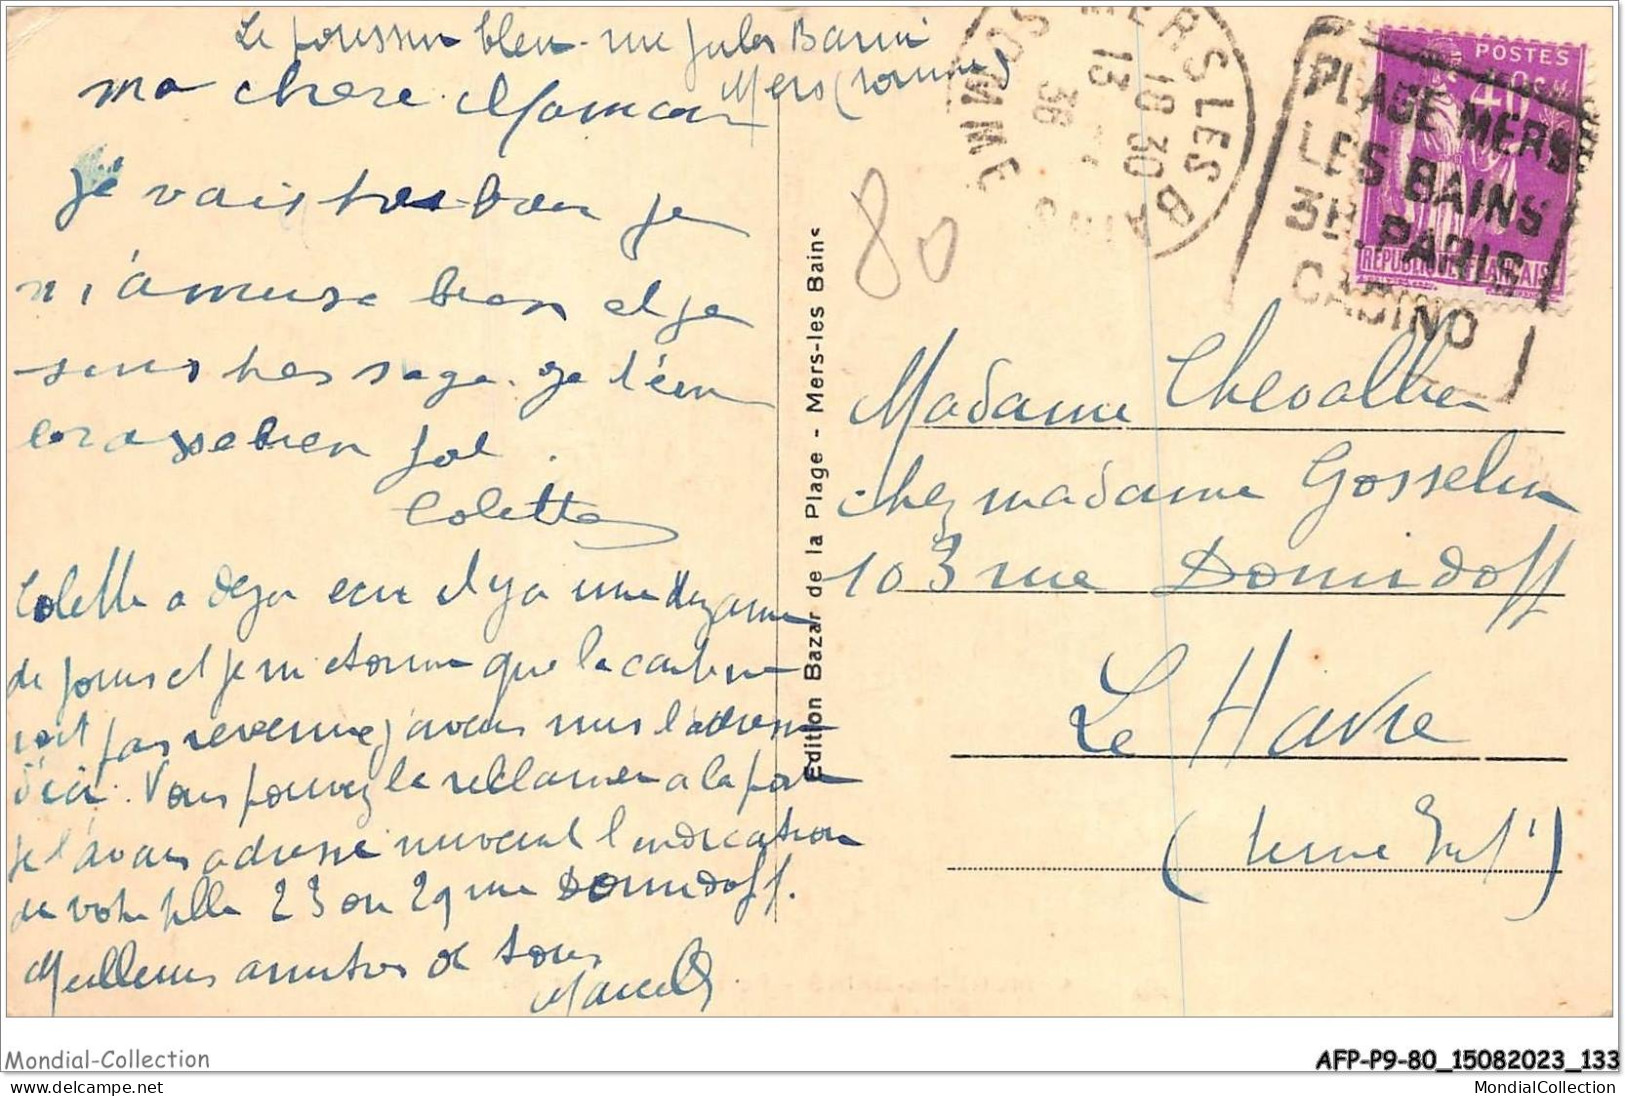 Le poussin bleu - rue Jules Barni
Mers (Somme)
ma chere Maman
je vais tres bon je
m'amuse bien et je
suis tres sage. Je t'em
brasse bien fol.
Colette
Colette a deja ecrit il y a une dizaine
de jours et je m'etonne que la carte ne
soit pas revenue, j'avais mis l'adresse
d'ici. Vous pouvez la reclamer a la poste
je l'avais adressé suivant l'indication
de votre fille 23 ou 29 rue Domidoff.
Meilleures amitiés de tous
Marcelle
Edition Bazar de la Plage - Mers-les Bains
80
MERS LES BAINS
18 30
13
36
SOMME
POSTES
40c
REPUBLIQUE FRANÇAISE
PLAGE MERS
LES BAINS
3H. PARIS
CASINO
Madame Chevallier
chez madame Gosselin
103 rue Domidoff
Le Havre
(Seine Infre)
Mondial-Collection
AFP-P9-80_15082023_133
www.delcampe.net
MondialCollection